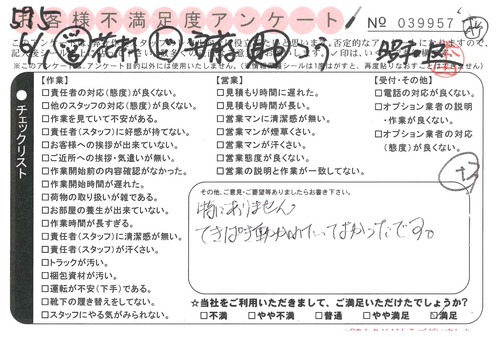 お客様不満足度アンケート
No 039957
チェックリスト
【作業】
□責任者の対応(態度)が良くない。
□他のスタッフの対応(態度)が良くない。
□作業を見ていて不安がある。
□責任者(スタッフ)に好感が持てない。
□お客様への挨拶が出来ていない。
□ご近所への挨拶・気遣いが無い。
□作業開始前の内容確認がなかった。
□作業開始時間が遅れた。
□荷物の取り扱いが雑である。
□お部屋の養生が出来ていない。
□作業時間が長すぎる。
□責任者(スタッフ)に清潔感が無い。
□責任者(スタッフ)が汗くさい。
□トラックが汚い。
□梱包資材が汚い。
□運転が不安(下手)である。
□靴下の履き替えをしてない。
□スタッフにやる気がみられない。
【営業】
□見積もり時間に遅れた。
□見積もり時間が長い。
□営業マンに清潔感が無い。
□営業マンが煙草くさい。
□営業マンが汗くさい。
□営業態度が良くない。
□営業の説明と作業が一致してない。
【受付・その他】
□電話の対応が良くない。
□オプション業者の説明
・作業が良くない。
□オプション業者の対応
(態度)が良くない。
その他、ご意見・ご要望等ありましたらお書き下さい。
特にありません
てきぱき動かれていてよかったです。
☆当社をご利用いただきまして、ご満足いただけたでしょうか?
□不満 □やや不満 □普通 □やや満足 ☑満足